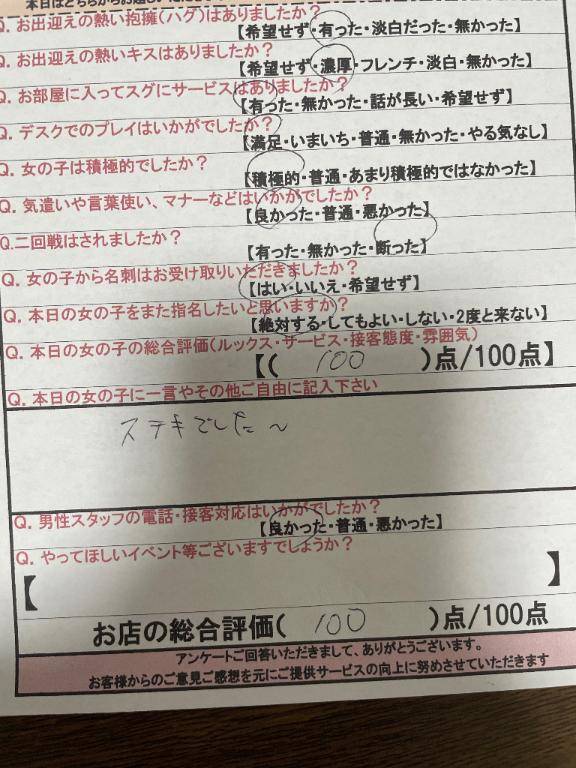 Q. お出迎えの熱い抱擁(ハグ)はありましたか?
【希望せず・有った・淡白だった・無かった】
Q. お出迎えの熱いキスはありましたか?
【希望せず・濃厚・フレンチ・淡白・無かった】
Q. お部屋に入ってスグにサービスはありましたか?
【有った・無かった・話が長い・希望せず】
Q. デスクでのプレイはいかがでしたか?
【満足・いまいち・普通・無かった・やる気なし】
Q. 女の子は積極的でしたか?
【積極的・普通・あまり積極的ではなかった】
Q. 気遣いや言葉使い、マナーなどはいかがでしたか?
【良かった・普通・悪かった】
Q.二回戦はされましたか?
【有った・無かった・断った】
Q. 女の子から名刺はお受け取りいただきましたか?
【はい・いいえ・希望せず】
Q. 本日の女の子をまた指名したいと思いますか?
【絶対する・してもよい・しない・2度と来ない】
Q. 本日の女の子の総合評価(ルックス・サービス・接客態度・雰囲気)
【( 100 )点/100点】
Q. 本日の女の子に一言やその他ご自由に記入下さい
ステキでした~
Q. 男性スタッフの電話・接客対応はいかがでしたか?
【良かった・普通・悪かった】
Q. やってほしいイベント等ございますでしょうか?
【 】
お店の総合評価( 100 )点/100点
アンケートご回答いただきまして、ありがとうございます。
お客様からのご意見ご感想を元にご提供サービスの向上に努めさせていただきます